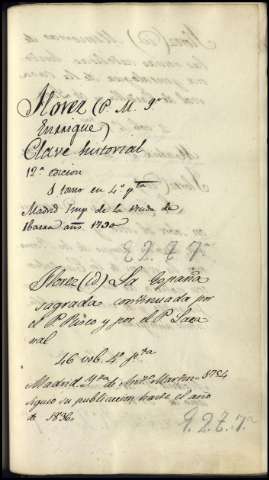 Florez (P. M. Fr
Enrrique)
Clave historial
12ª edicion
1 tomo en 4º pta
Madrid Imp. de la Viuda de
Ibarra año 1790
E 2. 7. 7ª
Florez (id) La España
sagrada continuada por
el P. Risco y por el P. Saez
46 vol. 4º pta
Madrid Ynta de Antº Martin 1754
siguio su publicacion hasta el año
de 1836.
E. 2. 6. 7ª